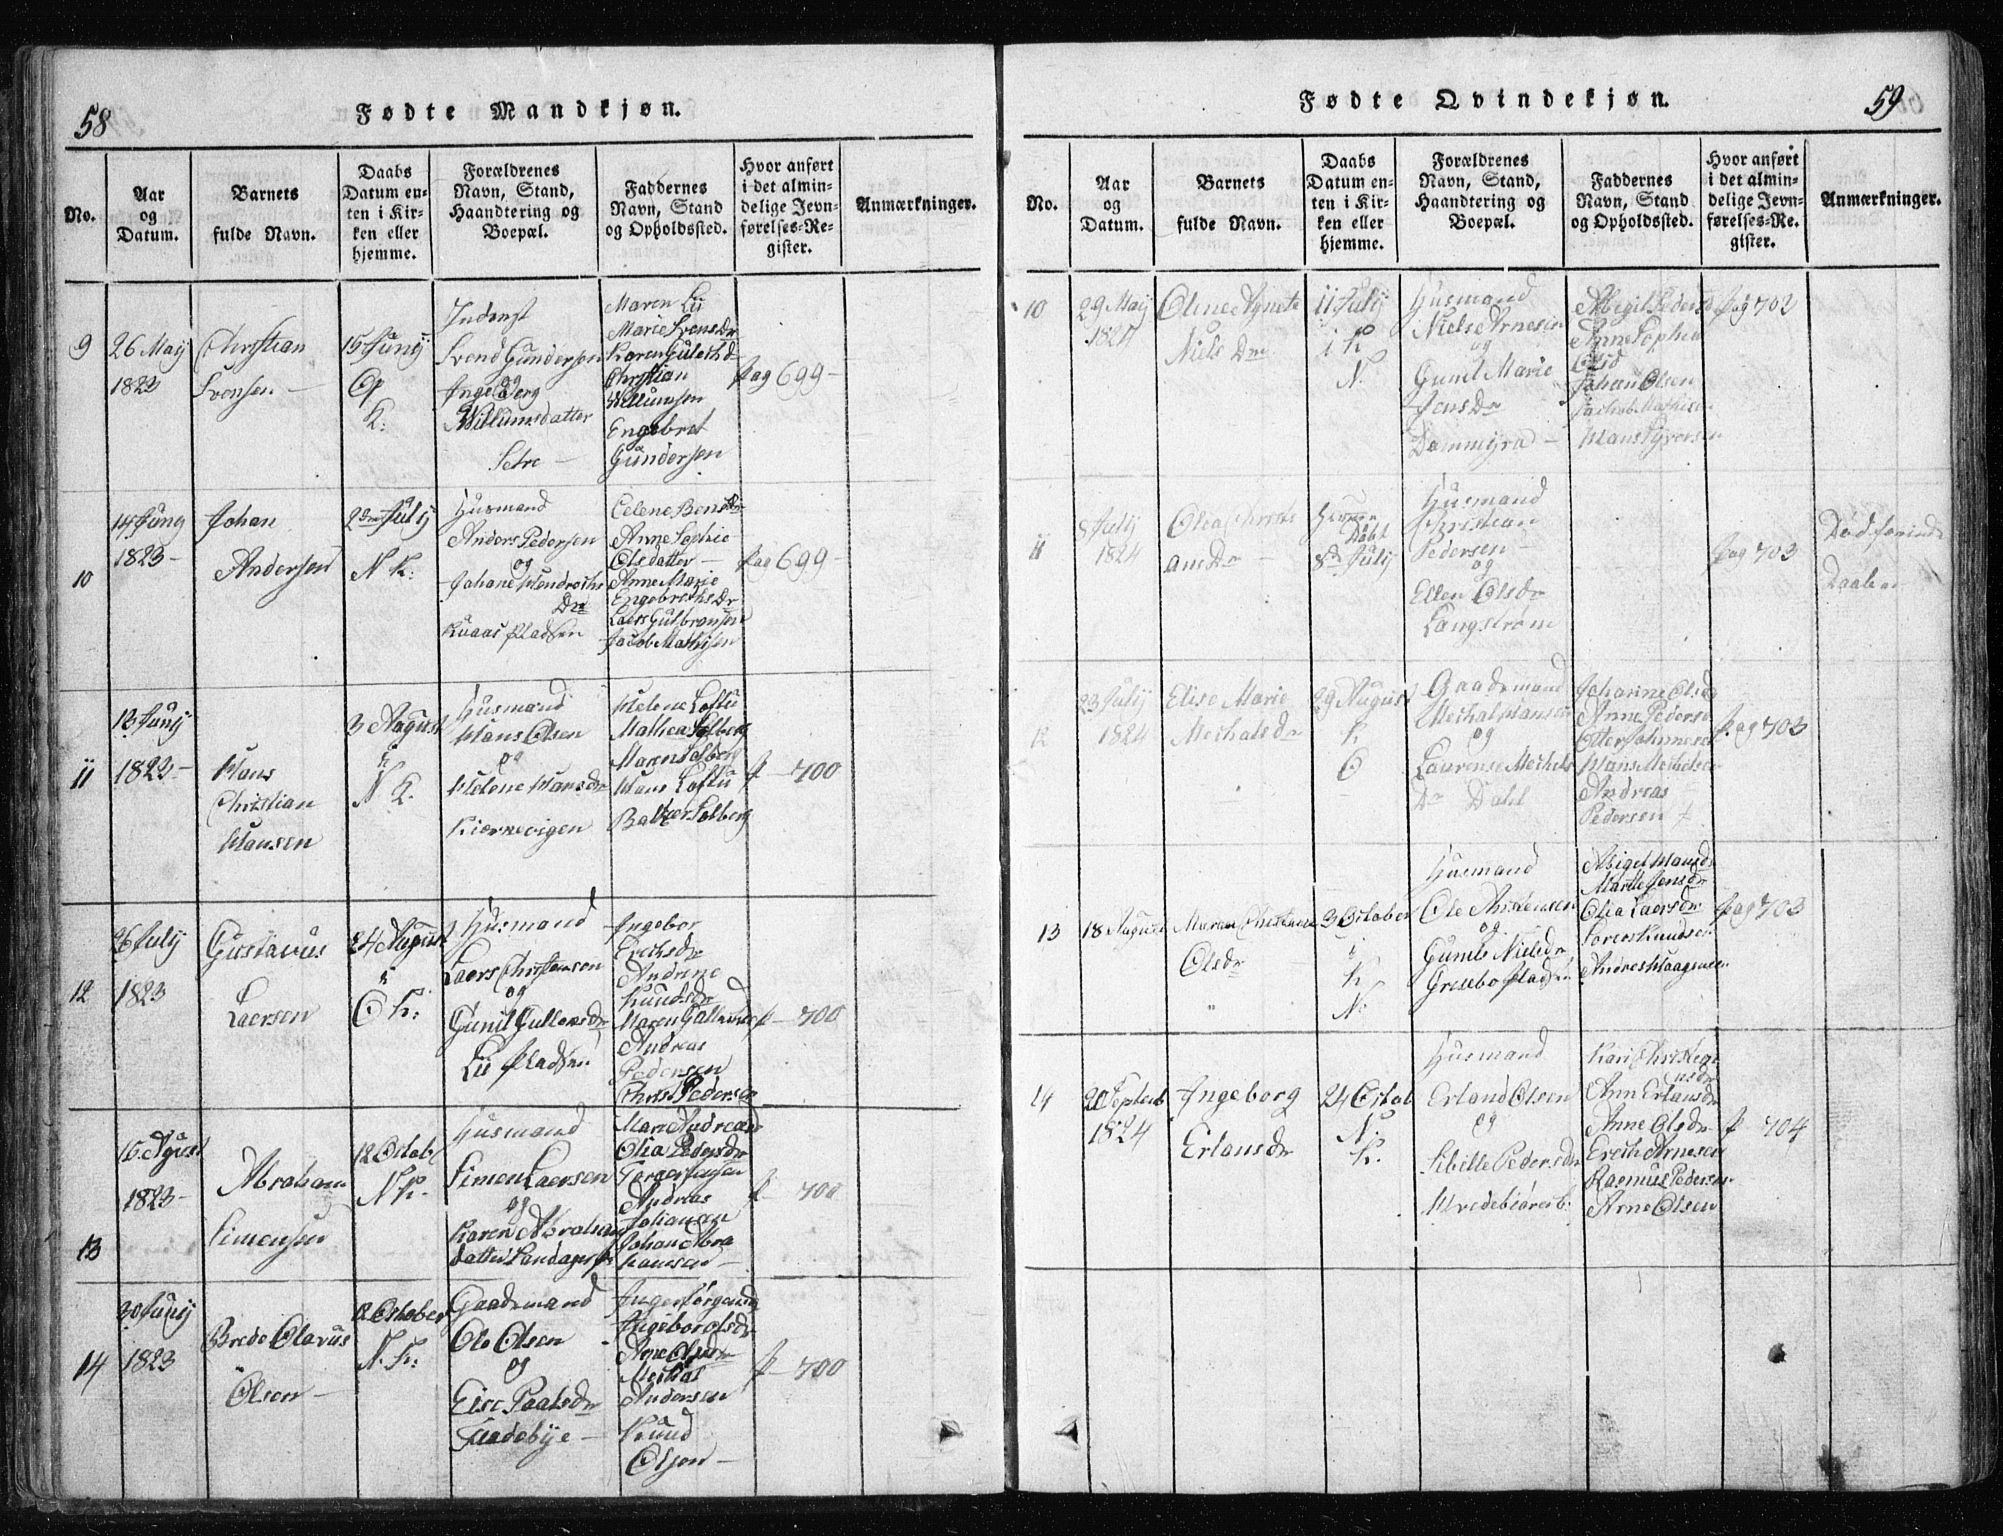 58
Fødte Mandkjøn.
No.
Aar
og
Datum.
Barnets
fulde Navn.
Daabs
Datum en-
ten i Kir-
ken eller
hjemme.
Forældrenes
Navn, Stand,
Haandtering og
Boepæl.
Faddernes
Navn, Stand
og Opholdssted.
Hvor anført
i det almin-
delige Jevn-
førelses-Re-
gister.
Anmærkninger.
9
26 Maij
1823
Christian
Svensen
15 Junij
K:
Inderst
Svend Gundersen
og
Ingeborg
Willumsdatter
Setre
Maren Lii
Marie Svensdr
Karen
Christian
Willumsen
Engebret
Gundersen
pag 699
10
14 Juny
1823
Johan
Andersen
2den Julij
N K:
Husmand
Anders Pedersen
og
Johane
Dr
Celene
Anne Sophie
Olsdatter
Anne Marie
Engebrechtsdr
Laers Gulbransen
Jacob Mathisen
pag 699
11
13 Junij
1823
Hans
Christian
Hansen
3 August
i
N K.
Husmand
Hans Olsen
og
Helene Hansdr
Kiernevigen
Helene Loftu
Mathea Solberg
Maren Solberg
Hans Loftu
Baltzer Solberg
p 700
12
26 Julij
1823
Gustavus
Laersen
24 August
i
O K:
Husmand
Laers Christensen
og
Gunil Gullensdr
Lii Pladsen
Ingebor
Ericksdr
Andrine
Knudsdr
Maren
Andreas
Pedersen
Christ Pedersen
p 700
13
15 Agust
1823
Abraham
Simensen
12 Octob
N K.
Husmand
Simen Laersen
og
Karen Abraham
datter
Marie Andreasd
Olia Pedersdr
Andreas
Johansen
Johan Abra
hamsen
p 700
14
30 Junij
1823
Brede Olavus
Olsen
12 October
N. K:
Gaardmand
Ole Olsen
og
Else Paalsdr
Fladebye
Inger Jørgensd
Ingeborg Olsdr
Anne Olsdr
Michal
Andersen
Knud
Olsen
p 700
59
Fødte Qvindekjøn.
No.
Aar
og
Datum.
Barnets
fulde Navn.
Daabs
Datum en-
ten i Kir-
ken eller
hjemme.
Forældrenes
Navn, Stand,
Haandtering og
Boepæl.
Faddernes
Navn, Stand
og Opholdssted.
Hvor anført
i det almin-
delige Jevn-
førelses-Re-
gister.
Anmærkninger.
10
29 Maij
1824
Oline Agnete
Niels Dr
11 Julij
i K
N.
Husmand
Niels Arnesen
og
Gunil Marie
Jens Dr
Dammyra
Abigel Pedersd
Anne Sophie
Olsd
Johan Olsen
Jachob Mathisen
Hans Syversen
pag 702
11
8 Julij
1824
Olea Christi
ane Dr
Døbt
8de Julij
Husmand
Christian
Pedersen
og
Ellen Olsdr
Langstrøm
pag 703
Død førind
Daaben
12
23 Julij
1824
Elise Marie
Michalsdr
29 August
K
O
Gaardmand
Michal Hansen
og
Laurense Michels
Dr Dahl
Johanne Olsdr
Anne Peders
Otter Johnnesen
Hans Michelsen
Andreas
Pedersen
pag 703
13
18 August
Maren Christiane
Olsdr
3 October
i
K
N.
Husmand
Ole Christensen
og
Gunild Nielsdr
Grisebo Pladsen
Abigel Hansdr
Marthe Jensdr
Olia Laersdr
Søren Knudsen
Andres Haagensen
pag 703
14
20 Septemb
1824
Ingeborg
Erlansdr
24 Octob
N.
K.
Husmand
Erland Olsen
og
Sibille Pedersdr
Kari Christiane
Ann Erlansdr
Anne Olsdr
Erich Arnesen
Rasmus Pedersen
Arne Olsen
p 704